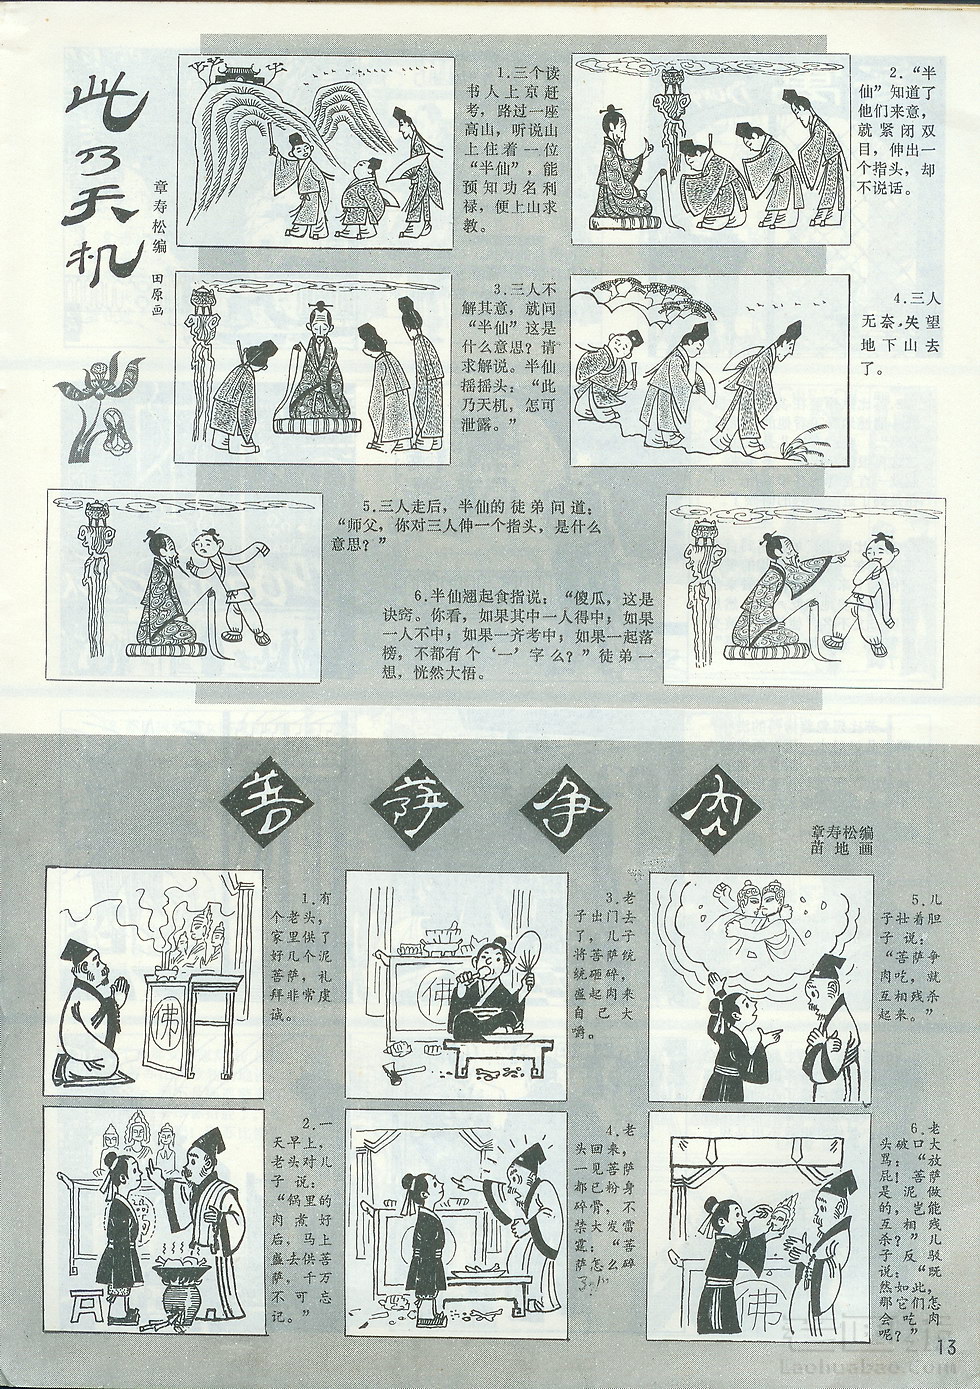 此乃天机
章寿松编 田原画
1.三个读
书人上京赶
考，路过一座
高山，听说山
上住着一位
“半仙”，能
预知功名利
禄，便上山求
教。
2.“半
仙”知道了
他们来意，
就紧闭双
目，伸出一
个指头，却
不说话。
3.三人不
解其意，就问
“半仙”这是
什么意思？请
求解说。半仙
摇摇头：“此
乃天机，怎可
泄露。”
4.三人
无奈，失望
地下山去
了。
5.三人走后，半仙的徒弟问道：
“师父，你对三人伸一个指头，是什么
意思？”
6.半仙翘起食指说：“傻瓜，这是
诀窍。你看，如果其中一人得中；如果
一人不中；如果一齐考中；如果一起落
榜，不都有个‘一’字么？”徒弟一
想，恍然大悟。
菩萨争肉
章寿松编
苗地画
1.有
个老头，
家里供了
好几个泥
菩萨，礼
拜非常虔
诚。
佛
2.一
天早上，
老头对儿
子说：
“锅里的
肉煮好
后，马上
盛去供菩
萨，千万
不可忘
记。”
3.老
子出门去
了，儿子
将菩萨统
统砸碎，
盛起肉来
自己大
嚼。
佛
4.老
头回来，
一见菩萨
都已粉身
碎骨，不
禁大发雷
霆：“菩
萨怎么碎
5.儿
子壮着胆
子说：
“菩萨争
肉吃，就
互相残杀
起来。”
6.老
头破口大
骂：“放
屁！菩萨
是泥做
的，岂能
互相残
杀？”儿
子反驳
说：“既
然如此，
那它们怎
会吃肉
呢？”
佛
13
Laohuabao.Com